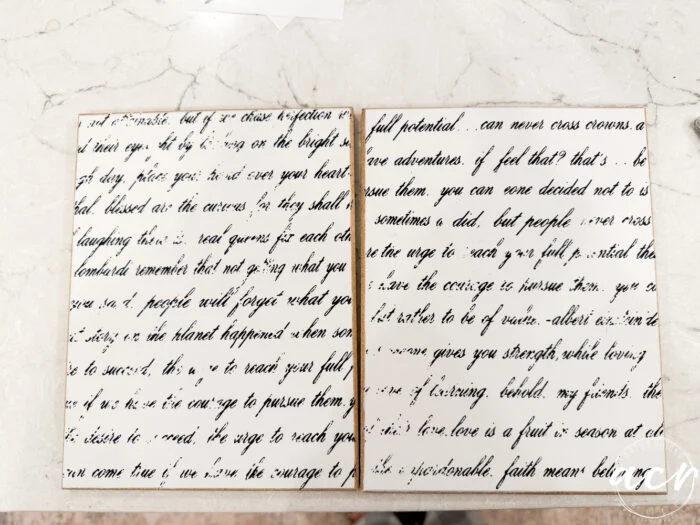 not attainable. but if we chase perfection w
their eye by on the bright s
day, place your hand over your heart
hal. blessed are the curious for they shall h
laughing them is. real queens fix each oth
lombardi remember that not getting what you
you said, people will forget what you
story on the planet happened when son
e to succeed, the urge to reach your full p
of we have the courage to pursue them. y
desire to succeed, the urge to reach you
can come true if we have the courage to p
full potential... can never cross crowns. a
ave adventures. if feel that? that's... be
rsue them. you can eone decided not to is
sometimes a did, but people never cross
re the urge to reach your full potential the
have the courage to pursue them. you c
but rather to be of value. -albert einstein de
gives you strength, while loving
of learning. behold, my friends, the
love. love is a fruit in season at all
like unpardonable. faith means believing
acr